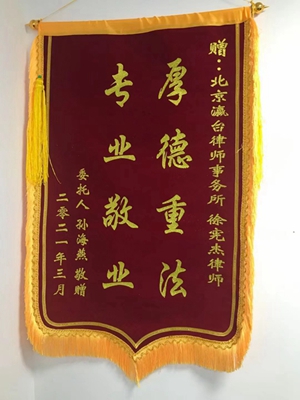 赠：北京瀛台律师事务所 徐宪杰律师
厚德重法
专业敬业
委托人 孙海燕 敬赠
二零二一年三月